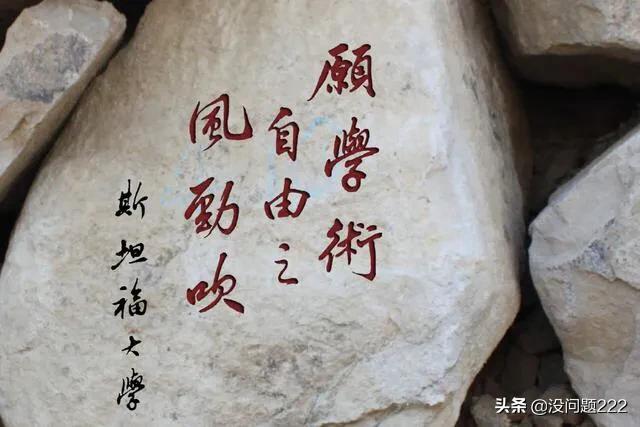 願學術
自由之
風勁吹
斯坦福大學
头条 @没问题222